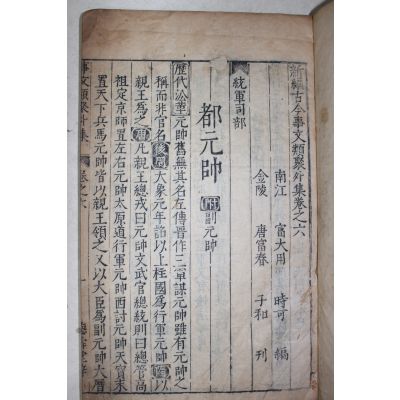 新編古今事文類聚外集卷之六
南江 富大用 時可 編
金陵 唐富春 子和 刊
統軍司部
都元帥 附副元帥
歷代沿革元帥舊無其名左傳晉作三軍謀元帥雖有元帥之
稱而非官名後周大象元年詔以上柱國爲行軍元帥唐以
親王爲之唐凡親王總戎曰元帥文武官總統則曰總管高
祖定京師置左右元帥太原道行軍元帥西討元帥天寶末
置天下兵馬元帥皆以親王領之又以大臣爲副元帥大曆
事文類聚外集 卷之六 一